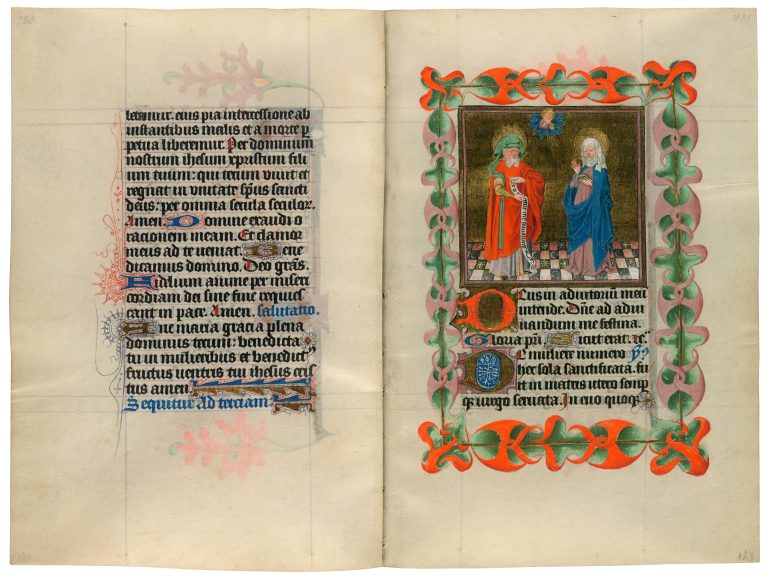 betemur. eius pia intercessione ab
instantibus malis et a morte p
petua liberemur. Per dominum
nostrum ihesum xpristum filiu
tuum: qui tecum vivit et
regnat in unitate sp̃us sancti
deus: per omnia secula seculor.
Amen. Domine exaudi o
racionem meam. Et clamor
meus ad te veniat. Bene
dicamus domino. Deo grãs.
Fidelium anime per miseri
cordiam dei sine fine requies
cant in pace. Amen. salutatio.
Ave maria gracia plena
dominus tecum: benedicta
tu in mulieribus et benedict
fructus ventris tui ihesus cris
tus amen
Sequitur Ad terciam:
Deus in adiutoriũ meũ
intende. Dñe ad adiu
uandum me festina.
Gloria pr̃i Sicut erat. 
mulierẽ numero
hec sola sanctificata. fu
it in matris utero semp
que virgo servata. In evo quoq3